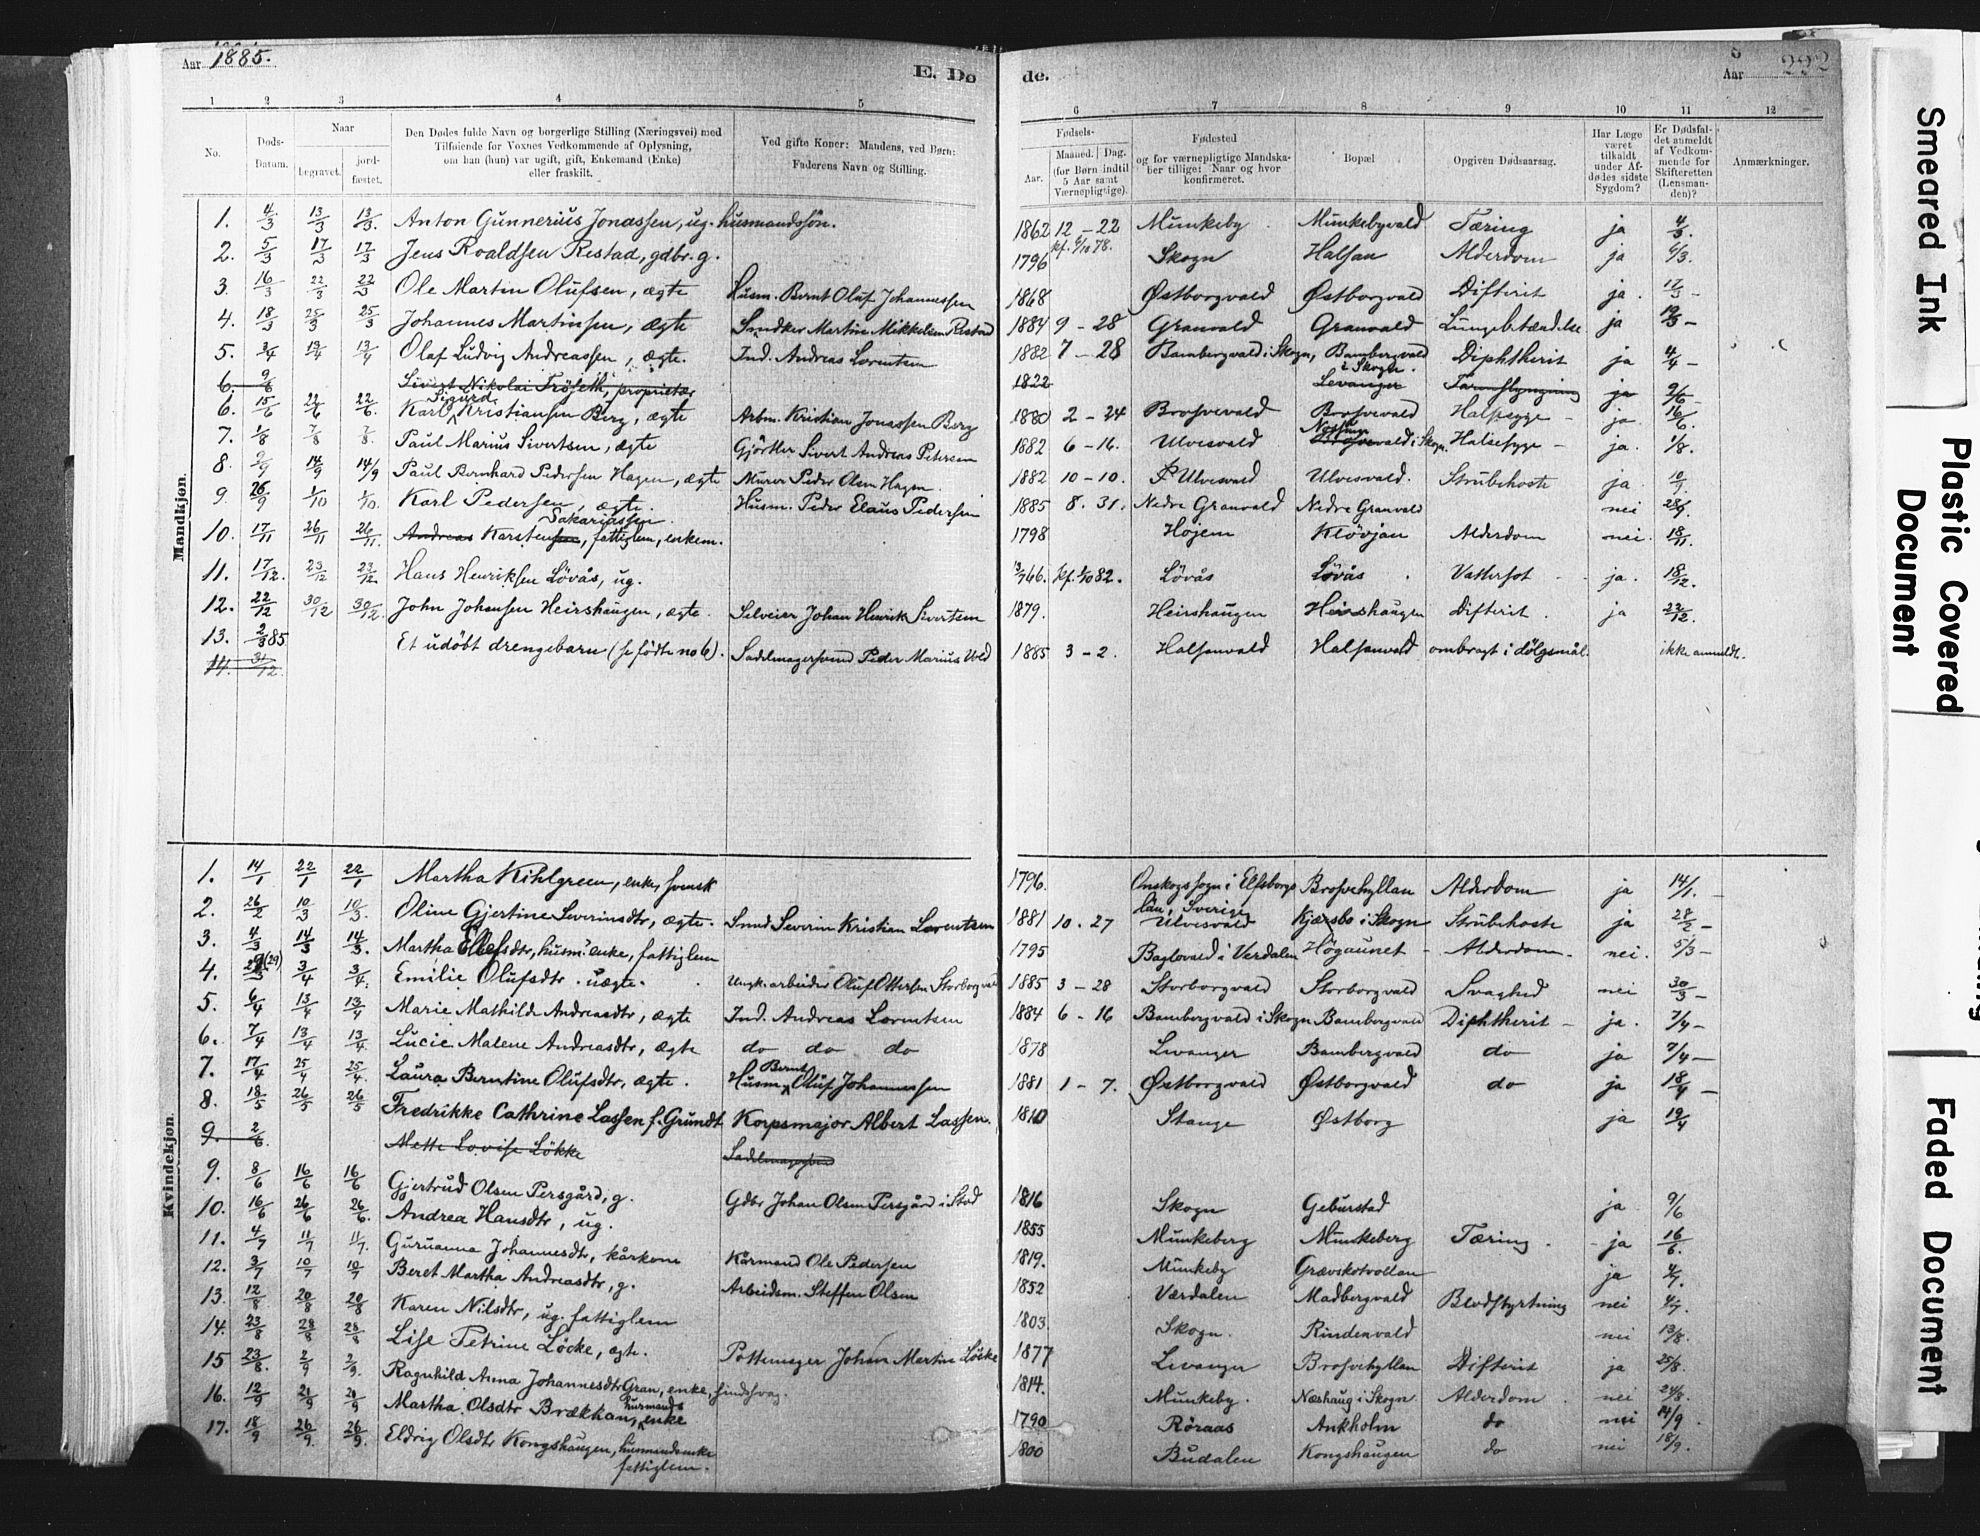 Aar 1885.
E. Dø
de.
Aar 222
1 2 3 4 5 6 7 8 9 10 11 12
No.
Døds-Datum.
Naar
Begravet.
jord-fæstet.
Den Dødes fulde Navn og borgerlige Stilling (Næringsvei) med
Tilføiende for Voxnes Vedkommende af Oplysning,
om han (hun) var ugift, gift, Enkemand (Enke)
eller fraskilt.
Ved gifte Koner: Mandens, ved Børn:
Faderens Navn og Stilling.
Fødsels-
Aar.
Maaned. Dag.
(for Børn indtil
5 Aar samt
Værnepligtige).
Fødested
og for værnepligtige Mandska-
ber tillige: Naar og hvor
konfirmeret.
Bopæl
Opgiven Dødsaarsag.
Har Læge
været
tilkaldt
under Af-
dødes sidste
Sygdom?
Er Dødsfal-
det anmeldt
af Vedkom-
mende for
Skifteretten
(Lensman-
den)?
Anmærkninger.
Mandkjøn.
1. 4/3 13/3 13/3. Anton Gunnerius Jonassen, ug. husmandssøn. 1862 12 - 22 Munkeby Munkebyvald Tæring ja 4/3.
2. 5/3 17/3 17/3 Jens Roaldsen Restad, gdbr. g. 1796 Skogn Halsan Alderdom ja 6/3.
3. 16/3 22/3 22/3 Ole Martin Olufsen, ægte Husm. Bernt Oluf Johannessen 1868 Østborgvald Østborgvald Difterit ja. 17/3 -
4. 18/3 25/3 25/3 Johannes Martinsen, ægte Martin Mikkelsen Restad 1884 9 - 28 Granvald Granvald Lungebetændelse ja 19/3 -
5. 3/4 13/4 13/4 Olaf Ludvig Andreassen, ægte. Ind. Andreas Lorentsen 1882 7 - 28 Bambergvald i Skogn, Bambergvald i Skogn. Diphtherit ja 4/4 -
6. 9/6 Sivert Nikolai Trøseth, proprietær 1822 Levanger ja 9/6 -
6. 15/6 22/6 22/6. Karl Sigurd Kristiansen Berg, ægte Arbm. Kristian Jonassen Berg 1880 2 - 24 Brosvevald Brosvevald Halssyge ja. 16/6.
7. 1/8 7/8 7/8. Paul Marius Sivertsen, ægte Gjörtler Sivert Andreas Petersen 1882 6 - 16. Ulvesvald i Skogn. Halssyge - ja. 1/8.
8. 9/9 14/9 14/9 Paul Bernhard Pedersen Hagen, ægte Murer Peder Olsen Hagen. 1882 10 - 10. Ulvesvald Ulvesvald. Strubehoste ja. 10/9
9. 26/9 1/10 1/10. Karl Pedersen, ægte. Husm. Peder Elaus Pedersen 1885 8. 31. Nedre Granvald Nedre Granvald nei 28/9.
10. 17/11 26/11 26/11. Andreas Karstensen Sakariassen, fattiglem, enkem. 1798 Højem Kløvjan Alderdom nei. 18/11.
11. 17/12. 23/12 23/12. Hans Henriksen Lövås, ug. kf. 1/10 82. Lövås Lövås. Vattersot - ja. 18/12.
12. 22/12 30/12 30/12. John Johansen Heirshaugen, ægte. Selveier Johan Henrik Sivertsen 1879. Heirshaugen Heirshaugen Difterit. ja 22/12.
13. 2/3 85 Et udöbt drengebarn (se födte no 6). Sadelmagersvend Peder Marius Vold 1885 3 - 2. Halsanvald Halsanvald ombragt i dölgsmål. ikke anmeldt.
14. 31/12.
Kvindekjøn.
1. 14/1 22/1 22/1 Martha Kihlgreen, enke, svensk 1796. Onskogssogn i Elfsborgs län, Sverige Brosvehyllan Alderdom ja 14/1. -
2. 26/2 10/3 10/3. Oline Gjertine Severinsdtr, ægte. Smed Severin Kristian Lorentsen 1881 10. 27 Ulvesvald Kjærsbo i Skogn Strubehoste ja 28/2 -
3. 4/3 14/3 14/3. Martha husm. enke, fattiglem 1795 Baglovald i Verdalen Högaunet - Alderdom. nei. 5/3 -
4. (29) 3/4 3/4. Emilie Olufsdtr. uægte. Ungk. arbeider Oluf Ottersen Storborgvald 1885 3 - 28 Storborgvald Storborgvald Svaghed nei 30/3 -
5. 6/4 13/4 13/4 Marie Mathilde Andreasdtr, ægte Ind. Andreas Lorentsen 1884 6 - 16 Bambergvald i Skogn Bambergvald Diphtherit - ja. 7/4 -
6. 7/4 13/4 13/4. Lucie Malene Andreasdtr, ægte do do do 1878 Levanger Bambergvald do ja 7/4 -
7. 17/4 25/4 25/4. Laura Berntine Olufsdtr, ægte. Husm. Bernt Oluf Johannessen 1881 1 - 7. Østborgvald Østborgvald do ja 18/4 -
8. 18/5 26/5 26/5 Fredrikke Cathrine Lassen f. Grundt Korpsmajor Albert Lassen. 1810 Stange Østborg ja 19/4
9. 2/6. Mette Lovise Lökke
9. 8/6 16/6 16/6 Gjertrud Olsen Persgård, g. Gdbr Johan Olsen Persgård i Stod 1816 Skogn Geburstad ja. 9/6
10. 16/6 26/6 26/6. Andrea Hansdtr, ug. 1855 Munkeberg Munkeberg Tæring. - ja 16/6.
11. 4/7 11/7 11/7. Guruanna Johannesdtr, kårkone Kårmand Ole Pedersen 1819. Munkeby Grævskotvollan ja 4/7.
12. 3/7 10/7 10/7 Beret Martha Andreasdtr, g. Arbeidsm. Steffen Olsen 1852 Værdalen Madbergvald Blodstyrtning nei 4/7.
13. 12/8 20/8 20/8 Karen Nilsdtr, ug. fattiglem 1803. Skogn. Rindenvald nei 13/8.
14. 23/8 28/8 28/8 Lise Petrine Löcke, ægte. Pottemager Johan Martin Löcke 1877 Levanger Brosvehyllan Difterit ja 25/8.
15 23/8. 2/9 2/9. Ragnhild Anna Johannesdtr Gran, enke, sindssvag. 1814. Munkeby. Næshaug i Skogn. Alderdom. nei 24/8.
16. 12/9 21/9 21/9 Martha Olsdtr Brækhan, husmands enke 1790 Röraas Ankholm do nei 14/9.
17. 18/9 26/9. 26/9. Eldrig Olsdtr Kongshaugen, husmandsenke fattiglem. 1800 Budalen Kongshaugen do nei 18/9.
Smeared Ink
Plastic Covered Document
Faded Document